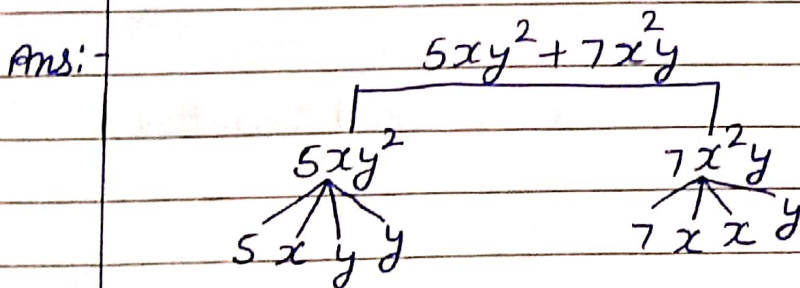 Ans:- 5xy² + 7x²y
5xy² 7x²y
5 x y y 7 x x y